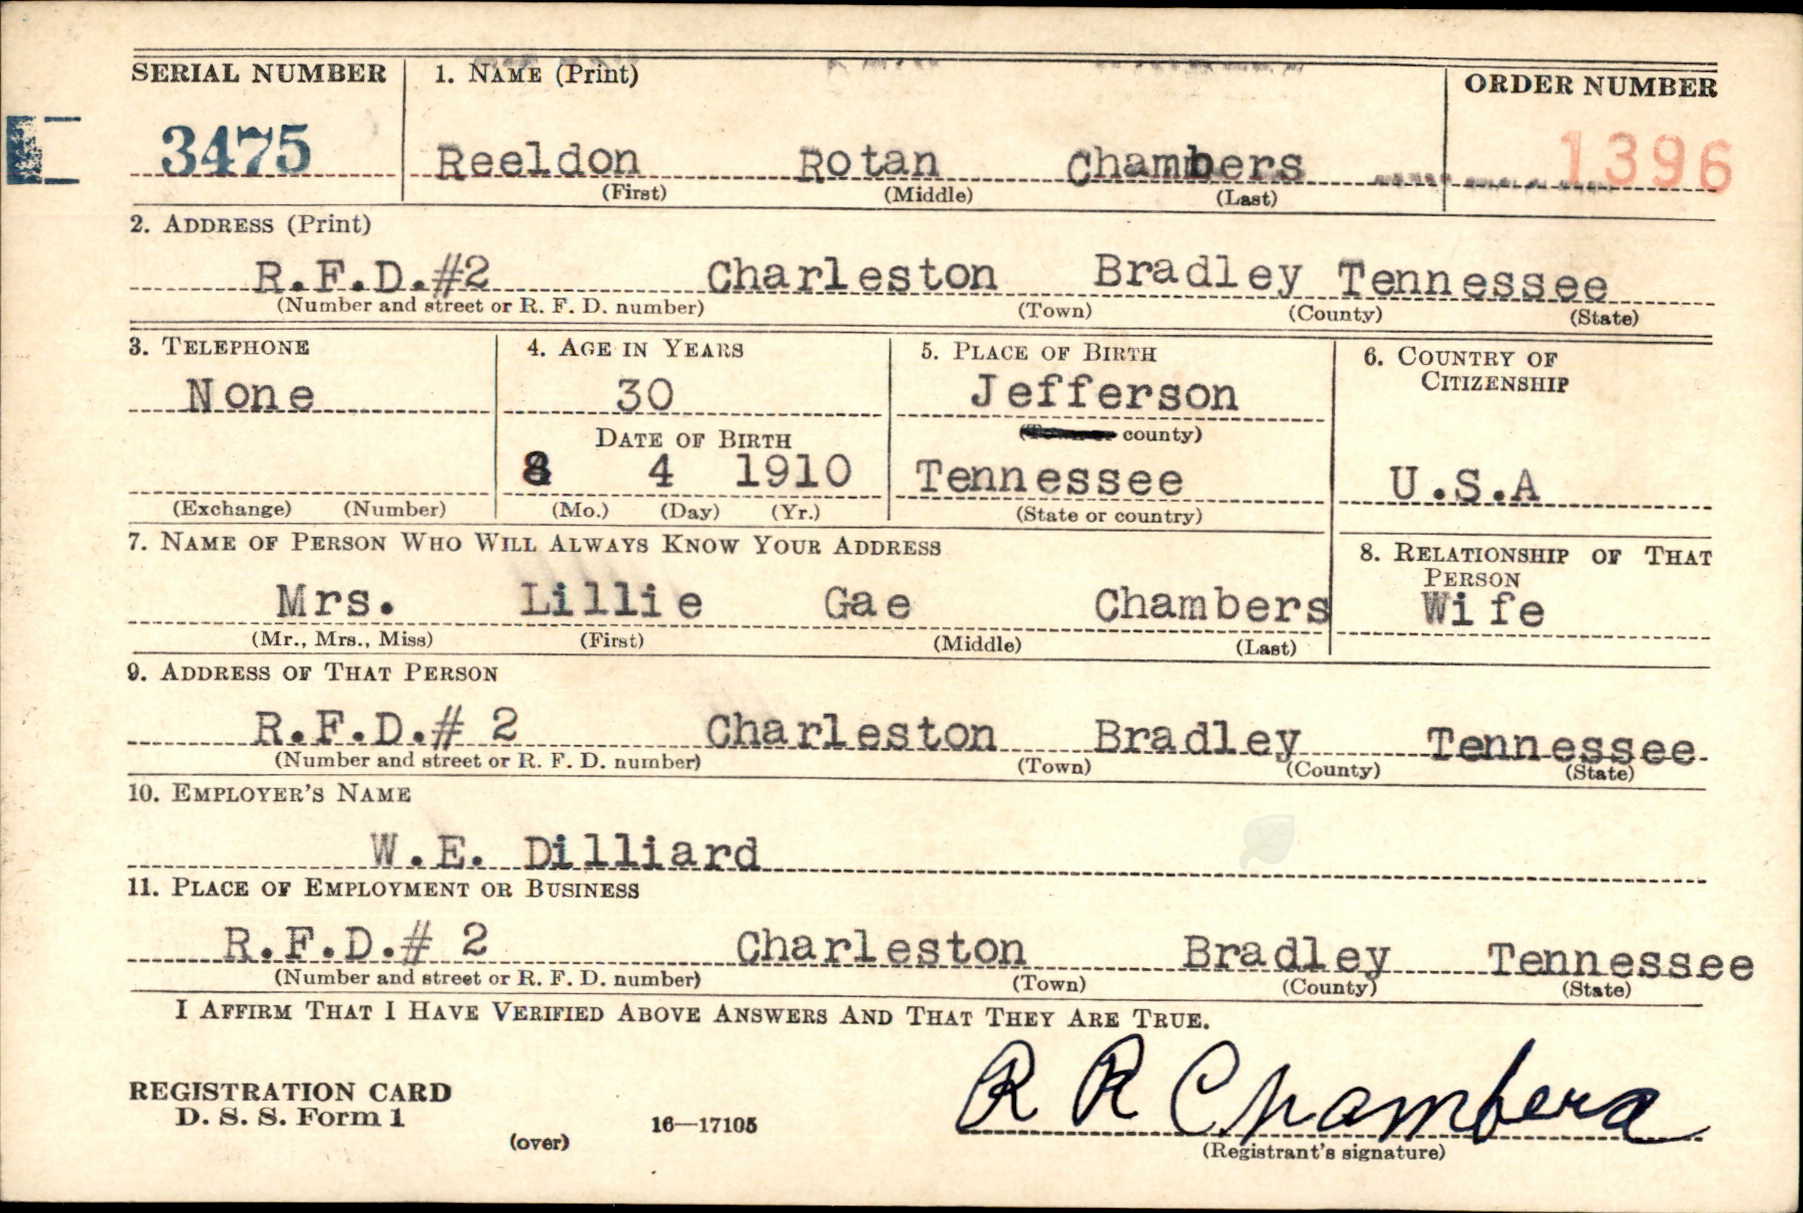 SERIAL NUMBER 1. NAME (Print) ORDER NUMBER
3475 Reeldon Rotan Chambers 1396
(First) (Middle) (Last)
2. ADDRESS (Print)
R.F.D.#2 Charleston Bradley Tennessee
(Number and street or R. F. D. number) (Town) (County) (State)
3. TELEPHONE 4. AGE IN YEARS 5. PLACE OF BIRTH 6. COUNTRY OF
CITIZENSHIP
None 30 Jefferson
DATE OF BIRTH county)
4 1910 Tennessee U.S.A
(Exchange) (Number) (Mo.) (Day) (Yr.) (State or country)
7. NAME OF PERSON WHO WILL ALWAYS KNOW YOUR ADDRESS 8. RELATIONSHIP OF THAT
PERSON
Mrs. Lillie Gae Chambers Wife
(Mr., Mrs., Miss) (First) (Middle) (Last)
9. ADDRESS OF THAT PERSON
R.F.D.# 2 Charleston Bradley Tennessee
(Number and street or R. F. D. number) (Town) (County) (State)
10. EMPLOYER'S NAME
W.E. Dilliard
11. PLACE OF EMPLOYMENT OR BUSINESS
R.F.D.# 2 Charleston Bradley Tennessee
(Number and street or R. F. D. number) (Town) (County) (State)
I AFFIRM THAT I HAVE VERIFIED ABOVE ANSWERS AND THAT THEY ARE TRUE.
REGISTRATION CARD
D. S. S. Form 1 R R Chambers
(over) 16—17105 (Registrant's signature)